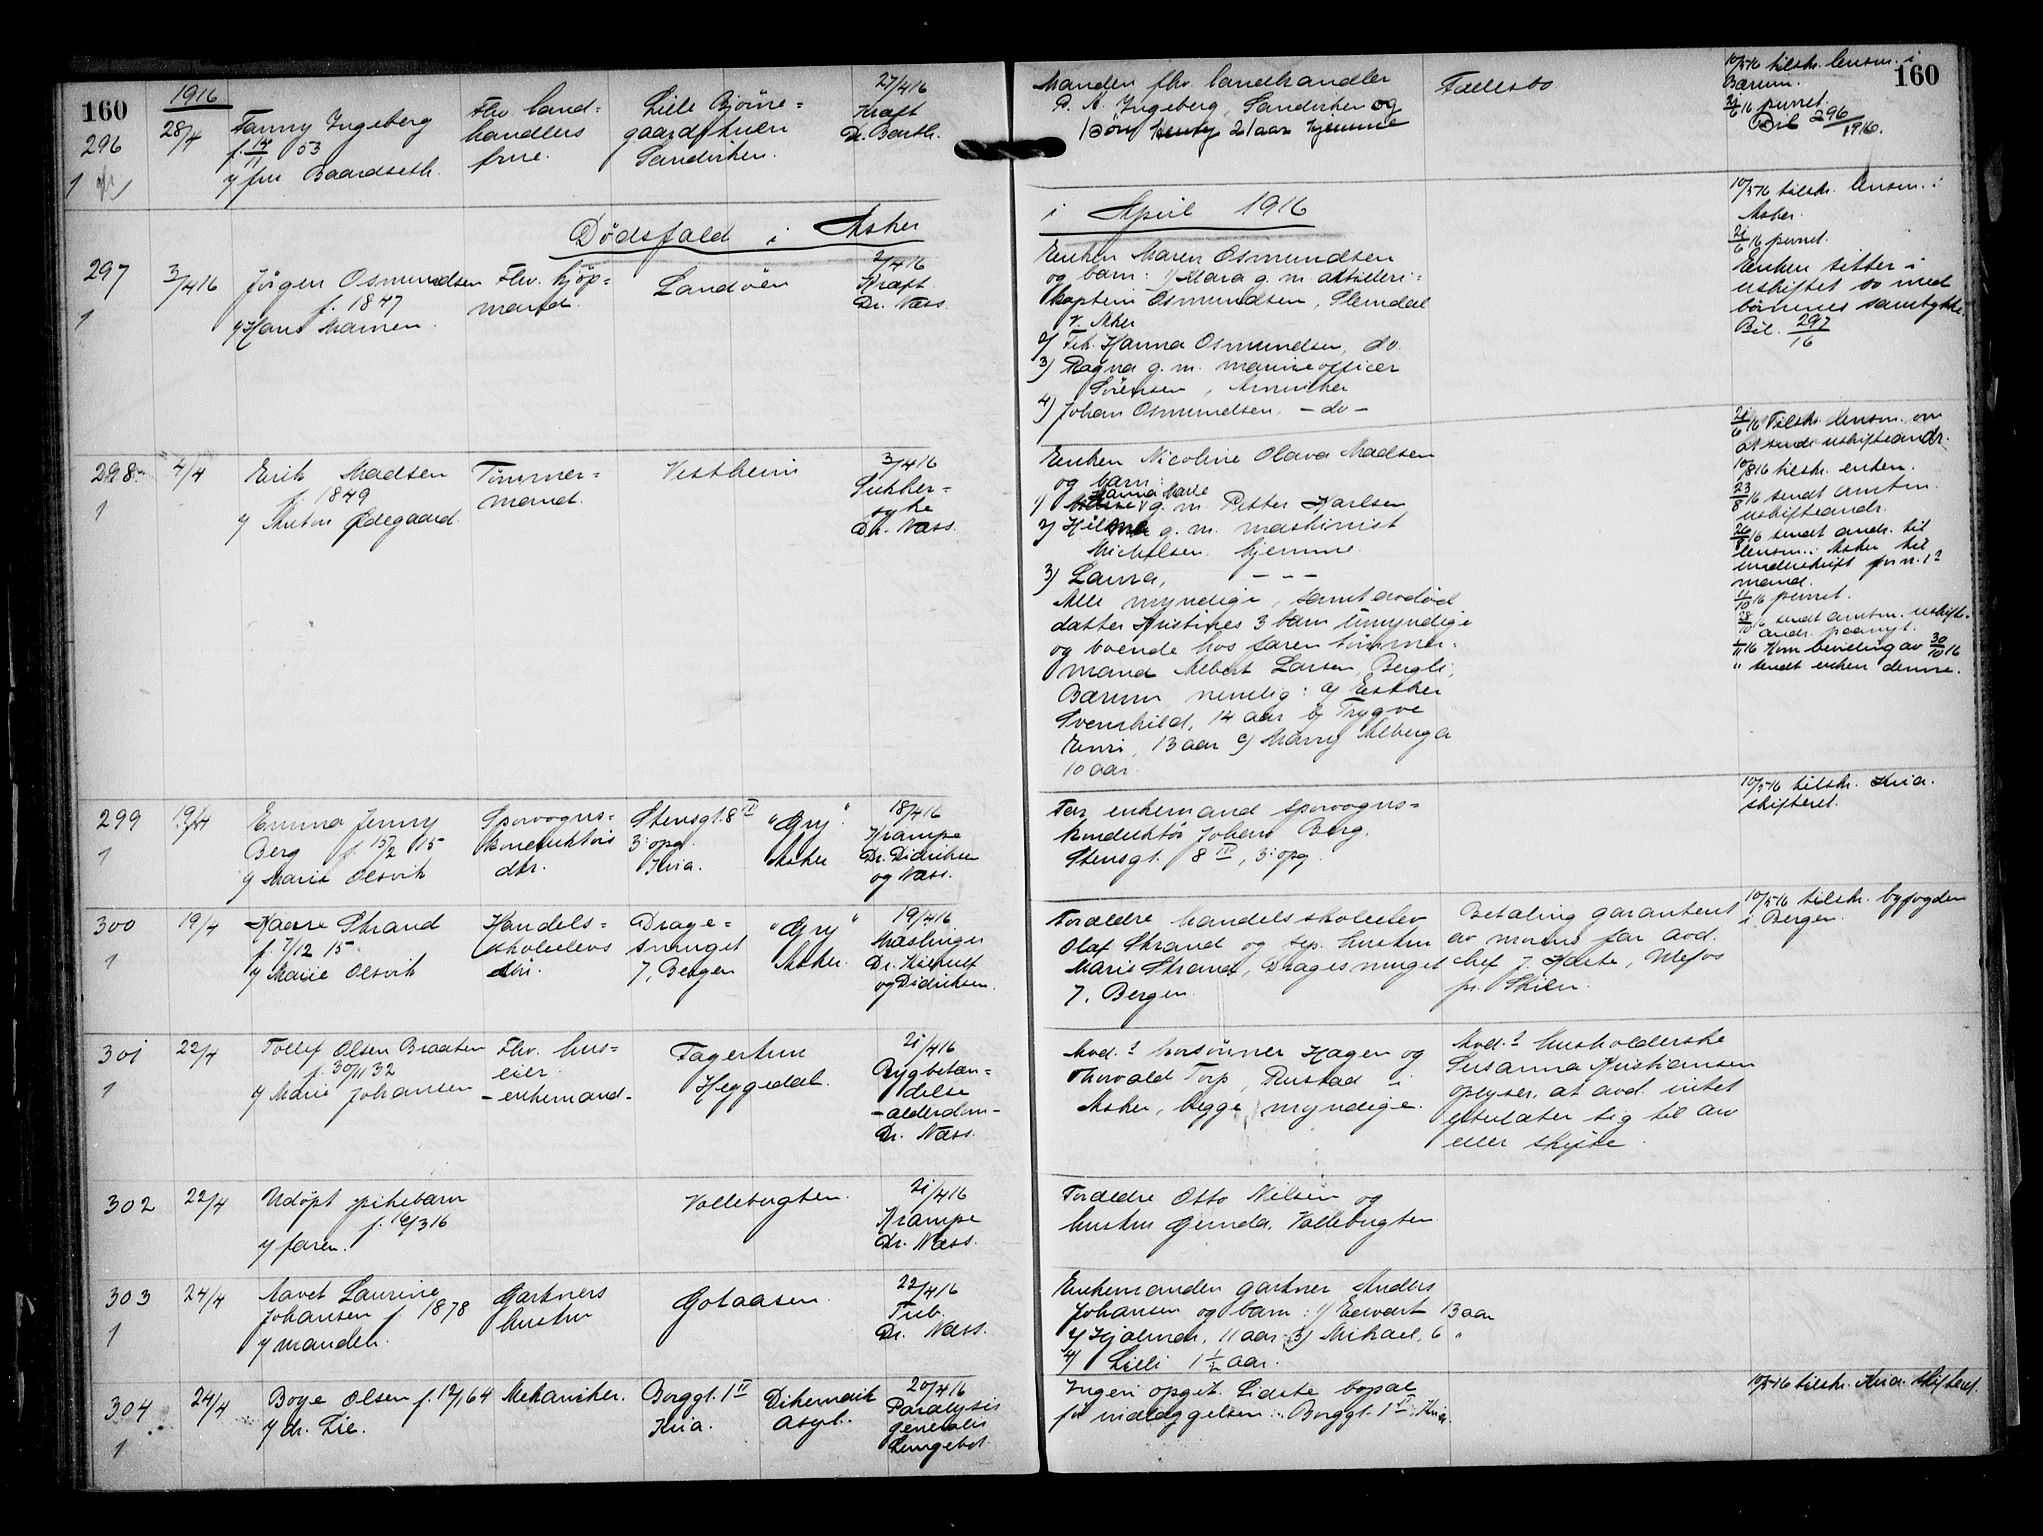 160
160
1916
296
1
28/4
Fanny Ingeberg
f. 14/11 53
v/ fru Baardseth.
Fhv. land=
handlers
frue.
Lille Bjørne=
gaardstuen
Sandviken.
27/4 16
Kræft
Dr. Barth.
Manden fhv. landhandler
P. A. Ingeberg, Sandviken og
børn Henry 21 aar hjemme
Fællesbo
10/5 16 tilskr. lensm. i
Bærum.
21/6 16 purret.
Bil 296/1916.
Dødsfald i Asker
i April 1916
297
1
3/4 16
Jørgen Osmundsen
f. 1847
v/ Hans Mamen.
Fhv. kjøp=
mand.
Landøen
2/4 16
Kræft
Dr. Næss.
Enken Maren Osmundsen
og barn: 1/ Mara g. m. artilleri=
kaptein Osmundsen, Slemdal
V. Aker
2/ Frk. Hanna Osmundsen, do.
3) Ragna g. m. marineofficer
Sørensen, Amerika
4) Johan Osmundsen, - do -
10/5 16 tilskr. lensm. i
Asker.
21/6 16 purret.
Enken sitter i
uskiftet bo med
børnenes samtykke.
Bil. 297/16
298
1
4/4
Erik Madsen
f. 1849
v/ Anton Ødegaard.
Tømmer=
mand.
Vestheim
3/4 16
Sukker=
syke
Dr. Næss.
Enken Nicoline Olava Madsen
og barn:
1) Hanna Marie g. m. Petter Karlsen
2) Hilma g. m. maskinist
Michelsen, hjemme.
3) Laura, - " -
Alle myndige, samt avdød
datter Kristines 3 barn umyndige
og boende hos faren tømmer=
mand Albert Larsen, Bergli,
Bærum, nemlig: a) Esther
Svenhild, 14 aar b) Trygve
Enri, 13 aar c) Marry Alberga
10 aar.
21/6 16 Tilskr. lensm. om
at sende uskifteandr.
10/8 16 tilskr. enken.
23/8 16 sendt amtm.
uskifteandr.
26/8 16 sendt andr. til
lensm. i Asker til
underskrift
mand.
11/10 16 purret.
28/10 16 sendt amtm. uskifte=
andr. paanyt.
1/11 16 Kom bevilling av 30/10 16
" sendt enken denne.
299
1
19/4
Emma Jenny
Berg f. 15/2 15
v/ Marie Olsvik
Sporvogns=
konduktørs
dtr.
Stensgt. 8 IV
3: opg.
Kria.
"Gry"
Asker
18/4 16
Krampe
Dr. Didriksen
og Næss.
Far, enkemand sporvogns=
konduktør Johan Berg.
Stensgt. 8 IV, 3: opg.
10/5 16 tilskr. Kria.
skifteret.
300
1
19/4
Kaare Strand
f. 7/12 15.
v/ Marie Olsvik
Handels=
skoleelevs
søn.
Drage=
smuget
7, Bergen
"Gry"
Asker.
19/4 16
Mæslinger
Dr. Kierulf
og Didriksen.
Forældre handelsskoleelev
Olaf Strand og sep. hustru
Marie Strand, Dragesmuget
7, Bergen.
Betaling garanteret
av morens far avd.
chef J. Høste, Ulefos
pr. Skien.
10/5 16 tilskr. byfogden
i Bergen.
301
1
22/4
Tollef Olsen Braaten
f. 30/11 32
v/ Marie Johansen
Fhv. hus=
eier.
- enkemand -
Fagertun
Heggedal.
21/4 16
Rygbetæn=
delse
- alderdom -
Dr. Næss.
Avd.s brorsønner Hagen og
Thorvald Torp, Rustad i
Asker, begge myndige.
Avd.s husholderske
Susanna Kristiansen
oplyser, at avd. intet
efterlater sig til arv
eller skifte.
302
22/4
Udøpt pikebarn
f. 16/3 16
v/ faren.
Vollebugten.
21/4 16
Krampe
Dr. Næss.
Forældre Otto Nilsen og
hustru Gunda, Vollebugten
303
1
24/4
Navet Laurine
Johansen f. 1878
v/ manden.
Gartners
hustru
Gotaasen
22/4 16
Tub.
Dr. Næss.
Enkemanden gartner Anders
Johansen og barn: 1/ Edvart 13 aar
2/ Hjalmar, 11 aar 3) Mikael, 6 "
4) Lilli 1 1/2 aar.
304
1
24/4
Boye Olsen f. 12/1 64
v/ dr. Lie.
Mekaniker.
Borggt. 1 II
Kria.
Dikemark
asyl.
20/4 16
Paralysis
generalis
Lungebet.
Ingen opgit. Sidste bopæl
før indlæggelsen: Borggt. 1 II, Kria.
10/5 16 tilskr. Kria. skifteret.